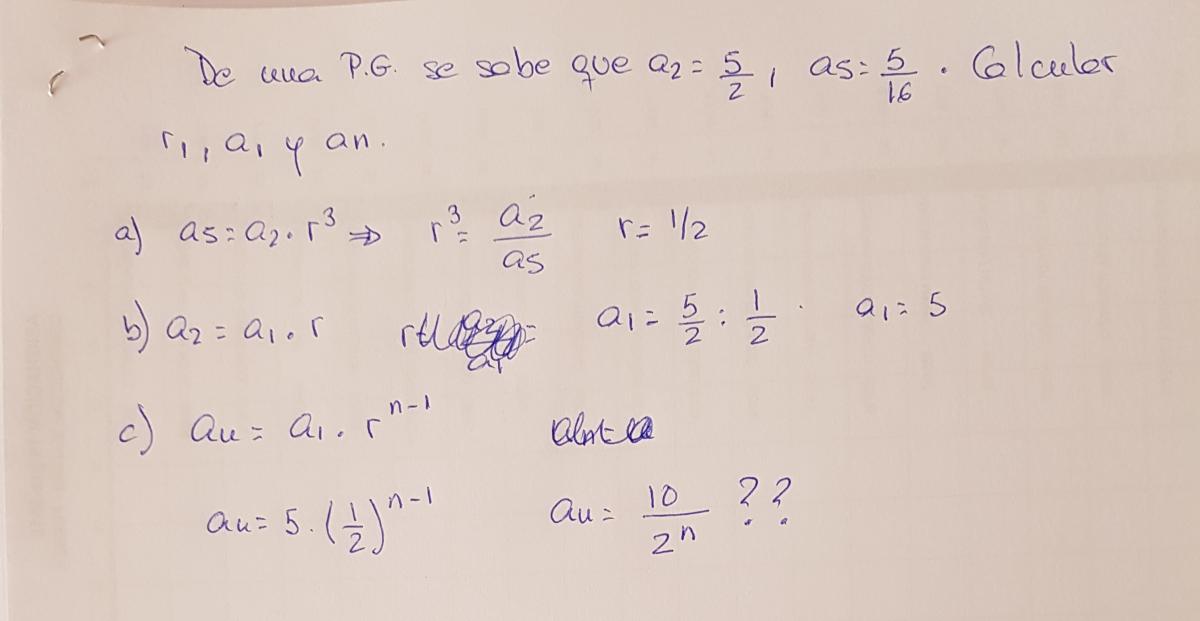 De una P.G. se sabe que a2 = 5/2, a5 = 5/16. Calcular
r1, a1 y an.
a) a5 = a2 · r^3 ⇒ r^3 = a2/a5 r = 1/2
b) a2 = a1 · r a1 = 5/2 : 1/2 · a1 = 5
c) an = a1 · r^n-1
an = 5 · (1/2)^n-1 an = 10/2^n ??